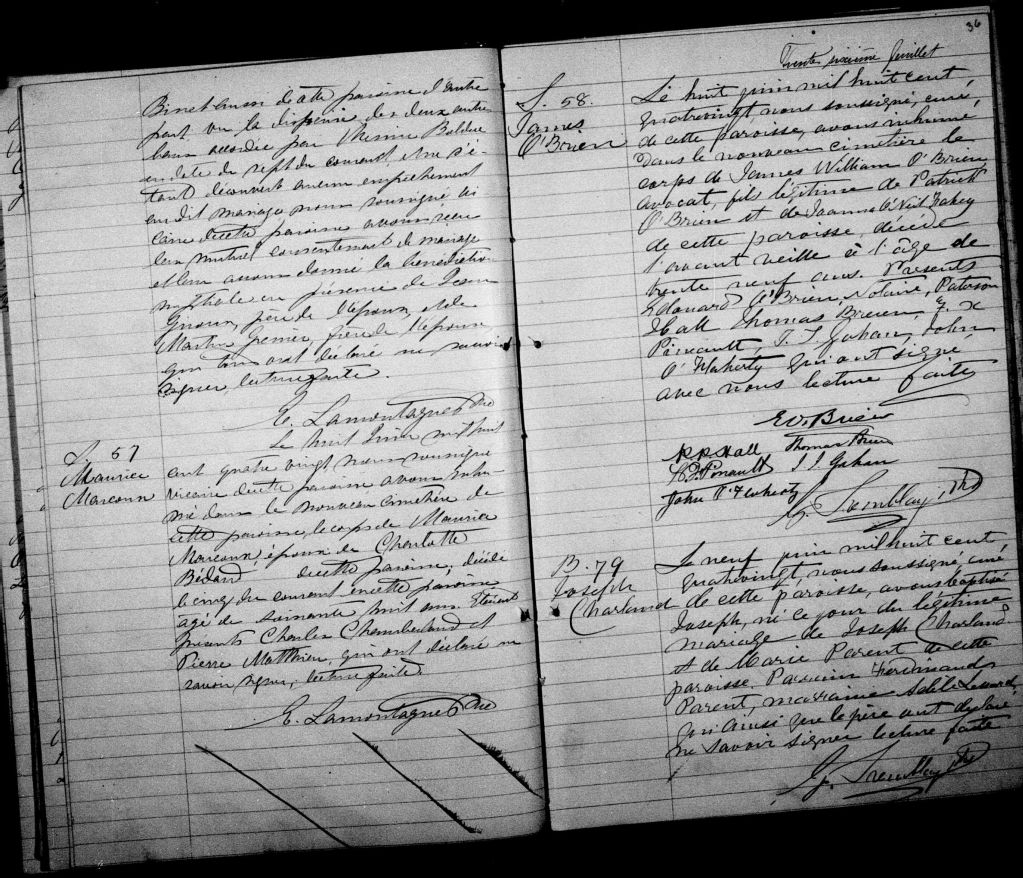 Binet Luson de cette paroisse d'autre
part vu la dispense des deux autres
bans accordée par Messire Bolduc
en date du sept du courant, & ne s'é
tant découvert aucun empêchement
au dit mariage nous soussigné vi
caire de cette paroisse avons reçu
leur mutuel consentement de mariage
et leur avons donné la bénédiction
nuptiale en présence de Jean
père de l'époux, et de
Martin Grenier, père de l'épouse
qui tous ont déclaré ne savoir
signer, lecture faite.
E. Lamontagne Ptre
S. 57
Maurice
Marcoux
Le huit Juin mil huit
cent quatre vingt, nous soussigné
vicaire de cette paroisse avons inhu-
mé dans le nouveau cimetière de
cette paroisse, le corps de Maurice
Marcoux, époux de Charlotte
Bédard de cette paroisse, décédé
le cinq du courant en cette paroisse
agé de soixante huit ans. Etaient
présents Charles Chamberland et
Pierre Matthieu, qui ont déclaré ne
savoir signer, lecture faite.
E. Lamontagne Ptre
36
Trente sixième feuillet
S. 58.
James
O'Brien
Le huit juin mil huit cent
quatrevingt nous soussigné, curé,
de cette paroisse, avons inhumé
dans le nouveau cimetière le
corps de James William O'Brien
avocat, fils légitime de Patrick
O'Brien et de Joanna O'Neil Fahey
de cette paroisse, décédé
l'avant veille à l'âge de
trente neuf ans. Présents
Edouard O'Brien, Notaire, Paterson
Hall Thomas Brien, F. X
Pinault, J. J. Gahan, John
O'Flaherty qui ont signé
avec nous lecture faite
Ed. O'Brien
P P Hall Thomas Brien
F. X. Pinault J J Gahan
John O'Flaherty
G. Tremblay, Ptr
B. 79
Joseph
Charland
Le neuf juin mil huit cent
quatrevingt, nous soussigné, curé
de cette paroisse, avons baptisé
Joseph, né ce jour du légitime
mariage de Joseph Charland
et de Marie Parent de cette
paroisse. Parrain Ferdinand
Parent, marraine Adèle
qui ainsi que le père ont déclaré
ne savoir signer lecture faite
G. Tremblay Ptr